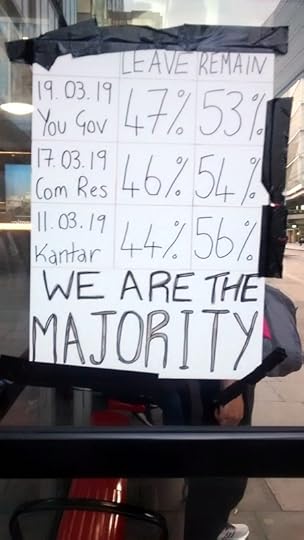 LEAVE REMAIN
19.03.19
You Gov 47% 53%
17.03.19
Com Res 46% 54%
11.03.19
Kantar 44% 56%
WE ARE THE
MAJORITY